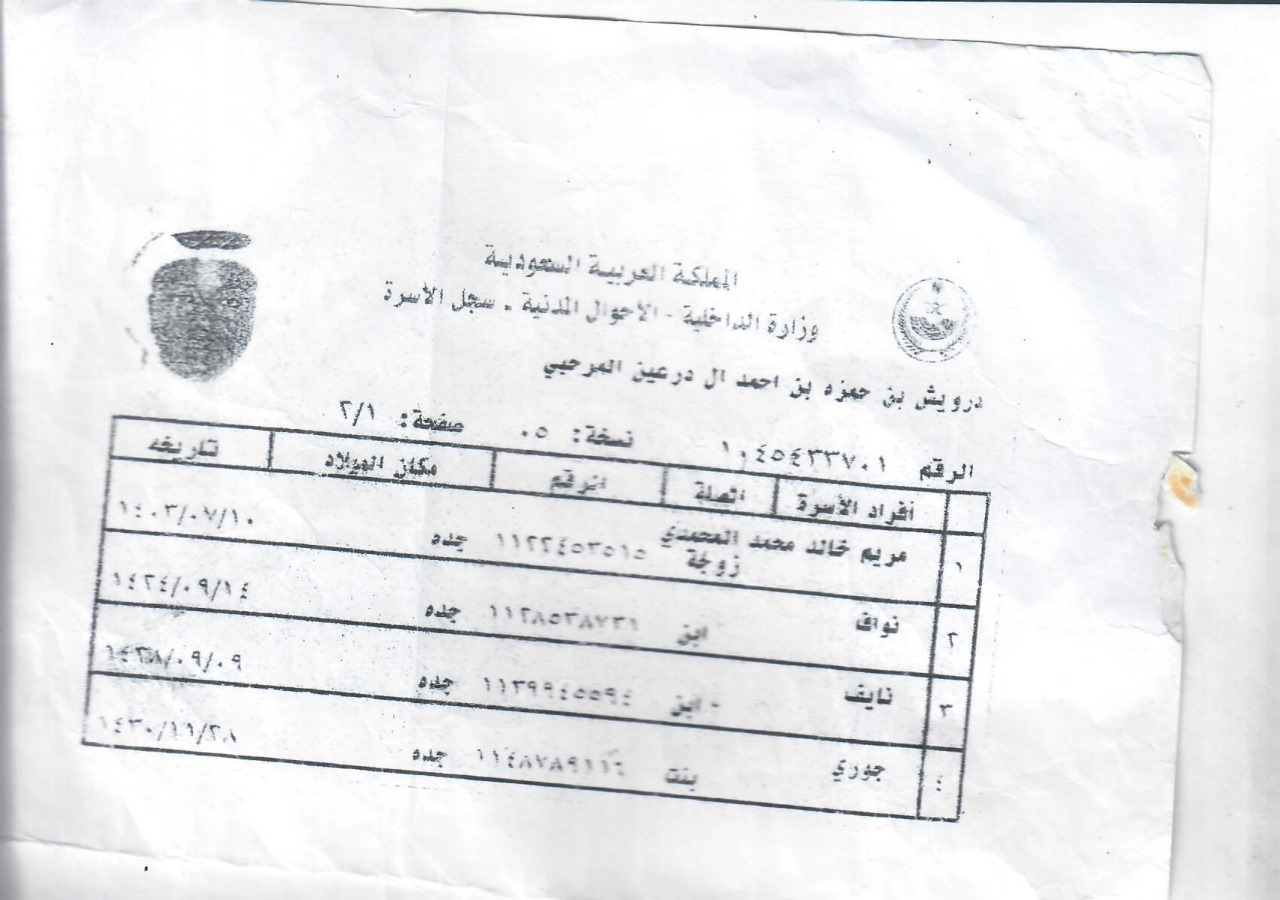 المملكة العربية السعودية
وزارة الداخلية - الأحوال المدنية - سجل الأسرة
درويش بن حمزه بن احمد ال درعين المرحبي
الرقم ١٠٤٥٤٣٣٧٠١ نسخة: ٠٥ صفحة: ٢/١
أفراد الأسرة الصلة الرقم مكان الميلاد تاريخه
١ مريم خالد محمد المحمدي زوجة جده ١٤٠٣/٠٧/١٠
٢ نواف ابن جده ١٤٢٤/٠٩/١٤
٣ نايف ابن ١١٣٩٩٤٥٥٩٤ جده
٤ جوري بنت جده